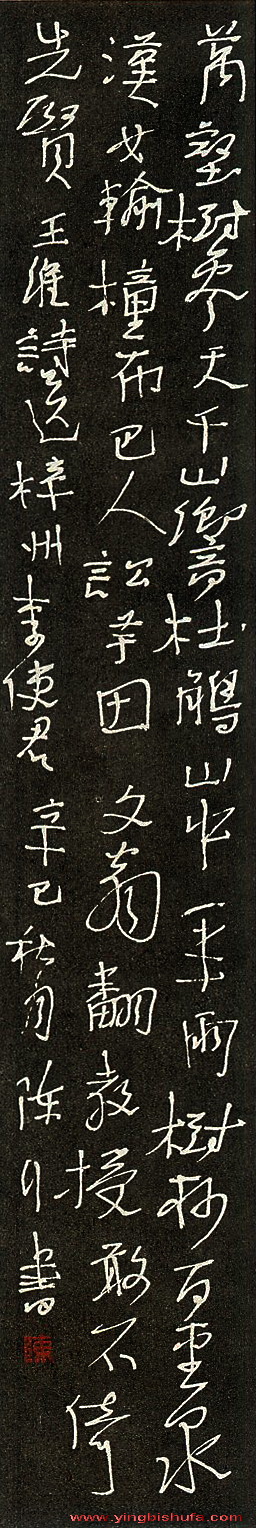 萬壑樹參天千山響杜鵑山中一半雨樹杪百重泉
漢女輸橦布巴人訟芋田文翁翻教授敢不倚
先賢 王維詩送梓州李使君 辛巳秋月 陳 書
www.yingbishufa.com